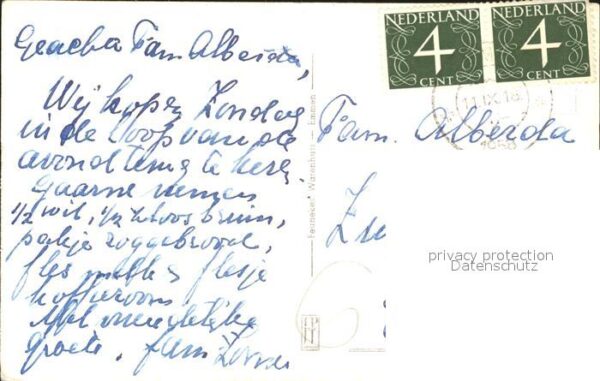 Geachte Fam Alberda,
Wij hopen Zondag
in de loop van de
avond terug te keren
Gaarne nemen
1/2 wit, 1/2 bruin,
pakje roggebrood,
fles melk, flesje
koffieroom
Met vriendelijke
groete, fam
NEDERLAND
4
CENT
NEDERLAND
4
CENT
11.IX.18
Fam. Alberda
Warenhuis — Emmen
privacy protection
Datenschutz